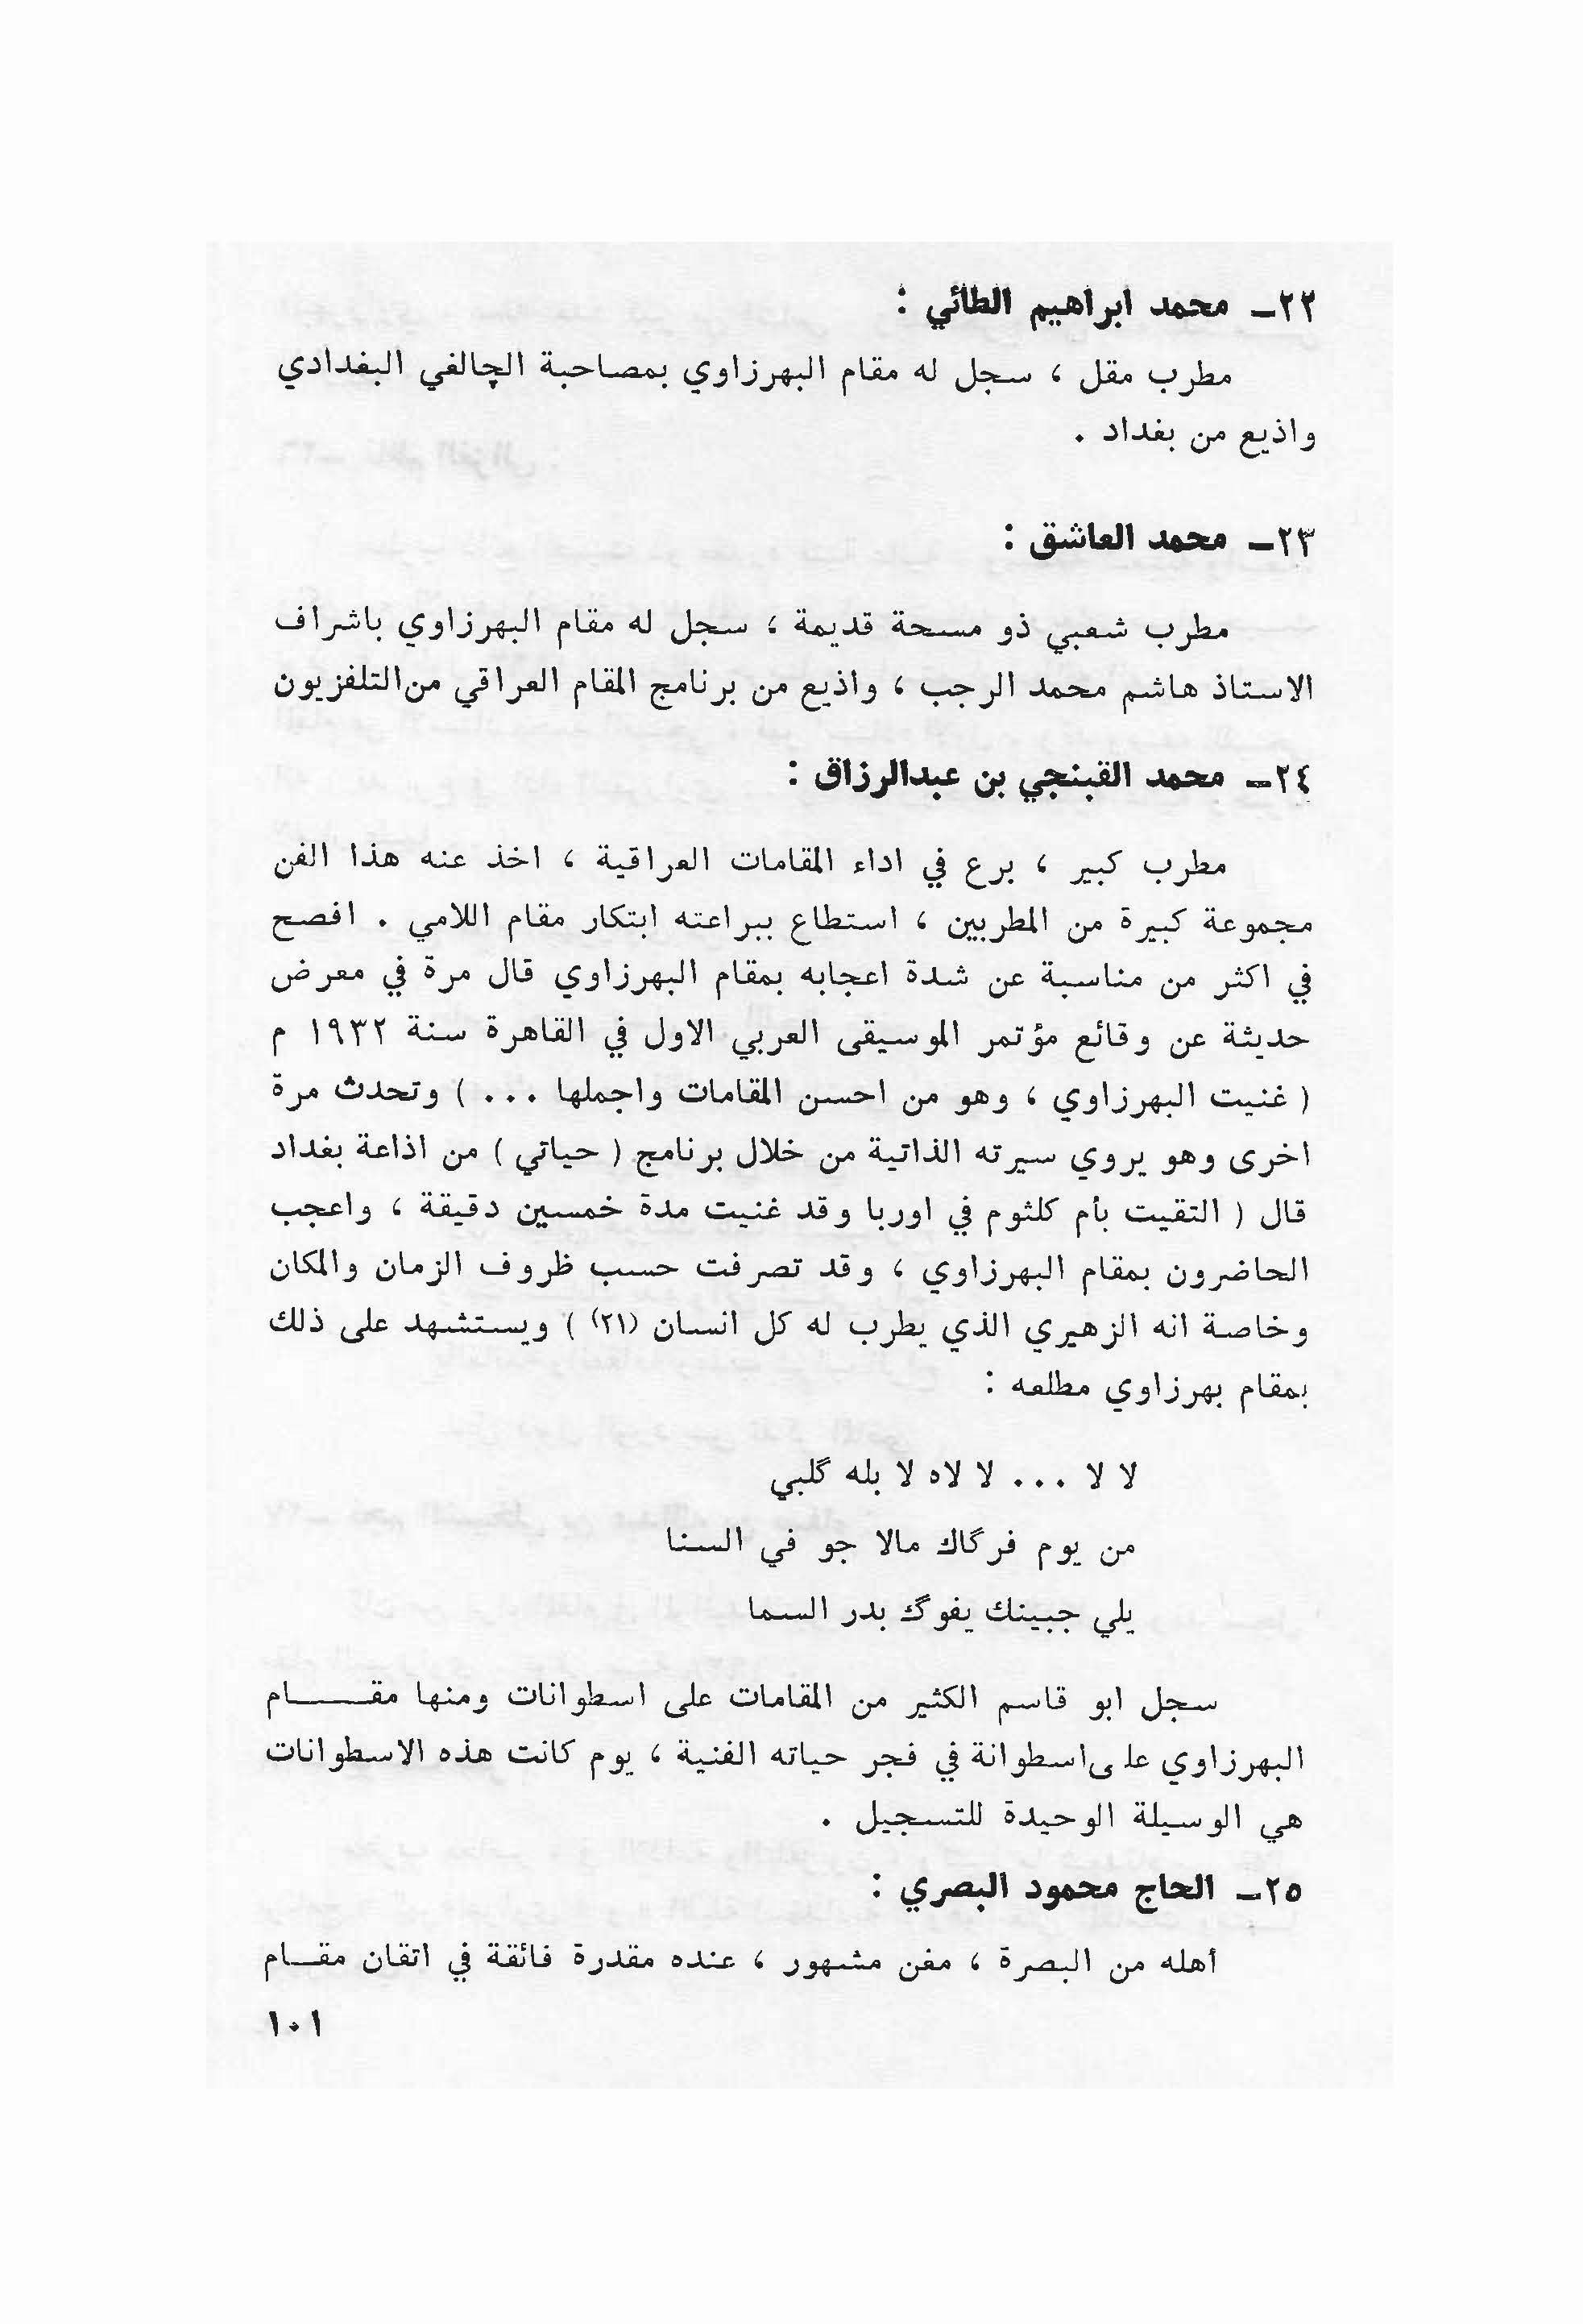 ٢٢ــ محمد ابراهيم الطائي :
مطرب مقل ، سجل له مقام البهرزاوي بمصاحبة الچالغي البغدادي
واذيع من بغداد .
٢٣ــ محمد العاشق :
مطرب شعبي ذو مسحة قديمة ، سجل له مقام البهرزاوي باشراف
الاستاذ هاشم محمد الرجب ، واذيع من برنامج المقام العراقي من التلفزيون
٢٤ــ محمد القبنجي بن عبدالرزاق :
مطرب كبير ، برع في اداء المقامات العراقية ، اخذ عنه هذا الفن
مجموعة كبيرة من المطربين ، استطاع ببراعته ابتكار مقام اللامي . افصح
في اكثر من مناسبة عن شدة اعجابه بمقام البهرزاوي قال مرة في معرض
حديثة عن وقائع مؤتمر الموسيقى العربي الاول في القاهرة سنة ١٩٣٢ م
( غنيت البهرزاوي ، وهو من احسن المقامات واجملها ... ) وتحدث مرة
اخرى وهو يروي سيرته الذاتية من خلال برنامج ( حياتي ) من اذاعة بغداد
قال ( التقيت بأم كلثوم في اوربا وقد غنيت مدة خمسين دقيقة ، واعجب
الحاضرون بمقام البهرزاوي ، وقد تصرفت حسب ظروف الزمان والمكان
وخاصة انه الزهيري الذي يطرب له كل انسان (٢١) ) ويستشهد على ذلك
بمقام بهرزاوي مطلعه :
لا لا ... لا لاه لا بله گلبي
من يوم فرگاك مالا جو في السنا
يلي جبينك يفوگ بدر السما
سجل ابو قاسم الكثير من المقامات على اسطوانات ومنها مقـــــام
البهرزاوي على اسطوانة في فجر حياته الفنية ، يوم كانت هذه الاسطوانات
هي الوسيلة الوحيدة للتسجيل .
٢٥ــ الحاج محمود البصري :
أهله من البصرة ، مغن مشهور ، عنده مقدرة فائقة في اتقان مقــام
١٠١